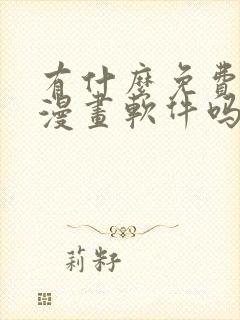 有什麼免費
漫畫軟件吗
莉籽